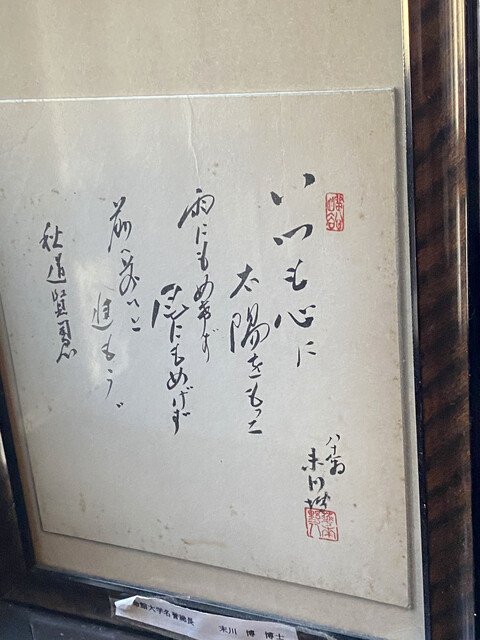 いつも心に
太陽をもって
雨にもめげず
風にもめげず
前へ前へと
進もう。
秋道賢
八十翁
末川博
命館大学名誉総長
末川 博 博士